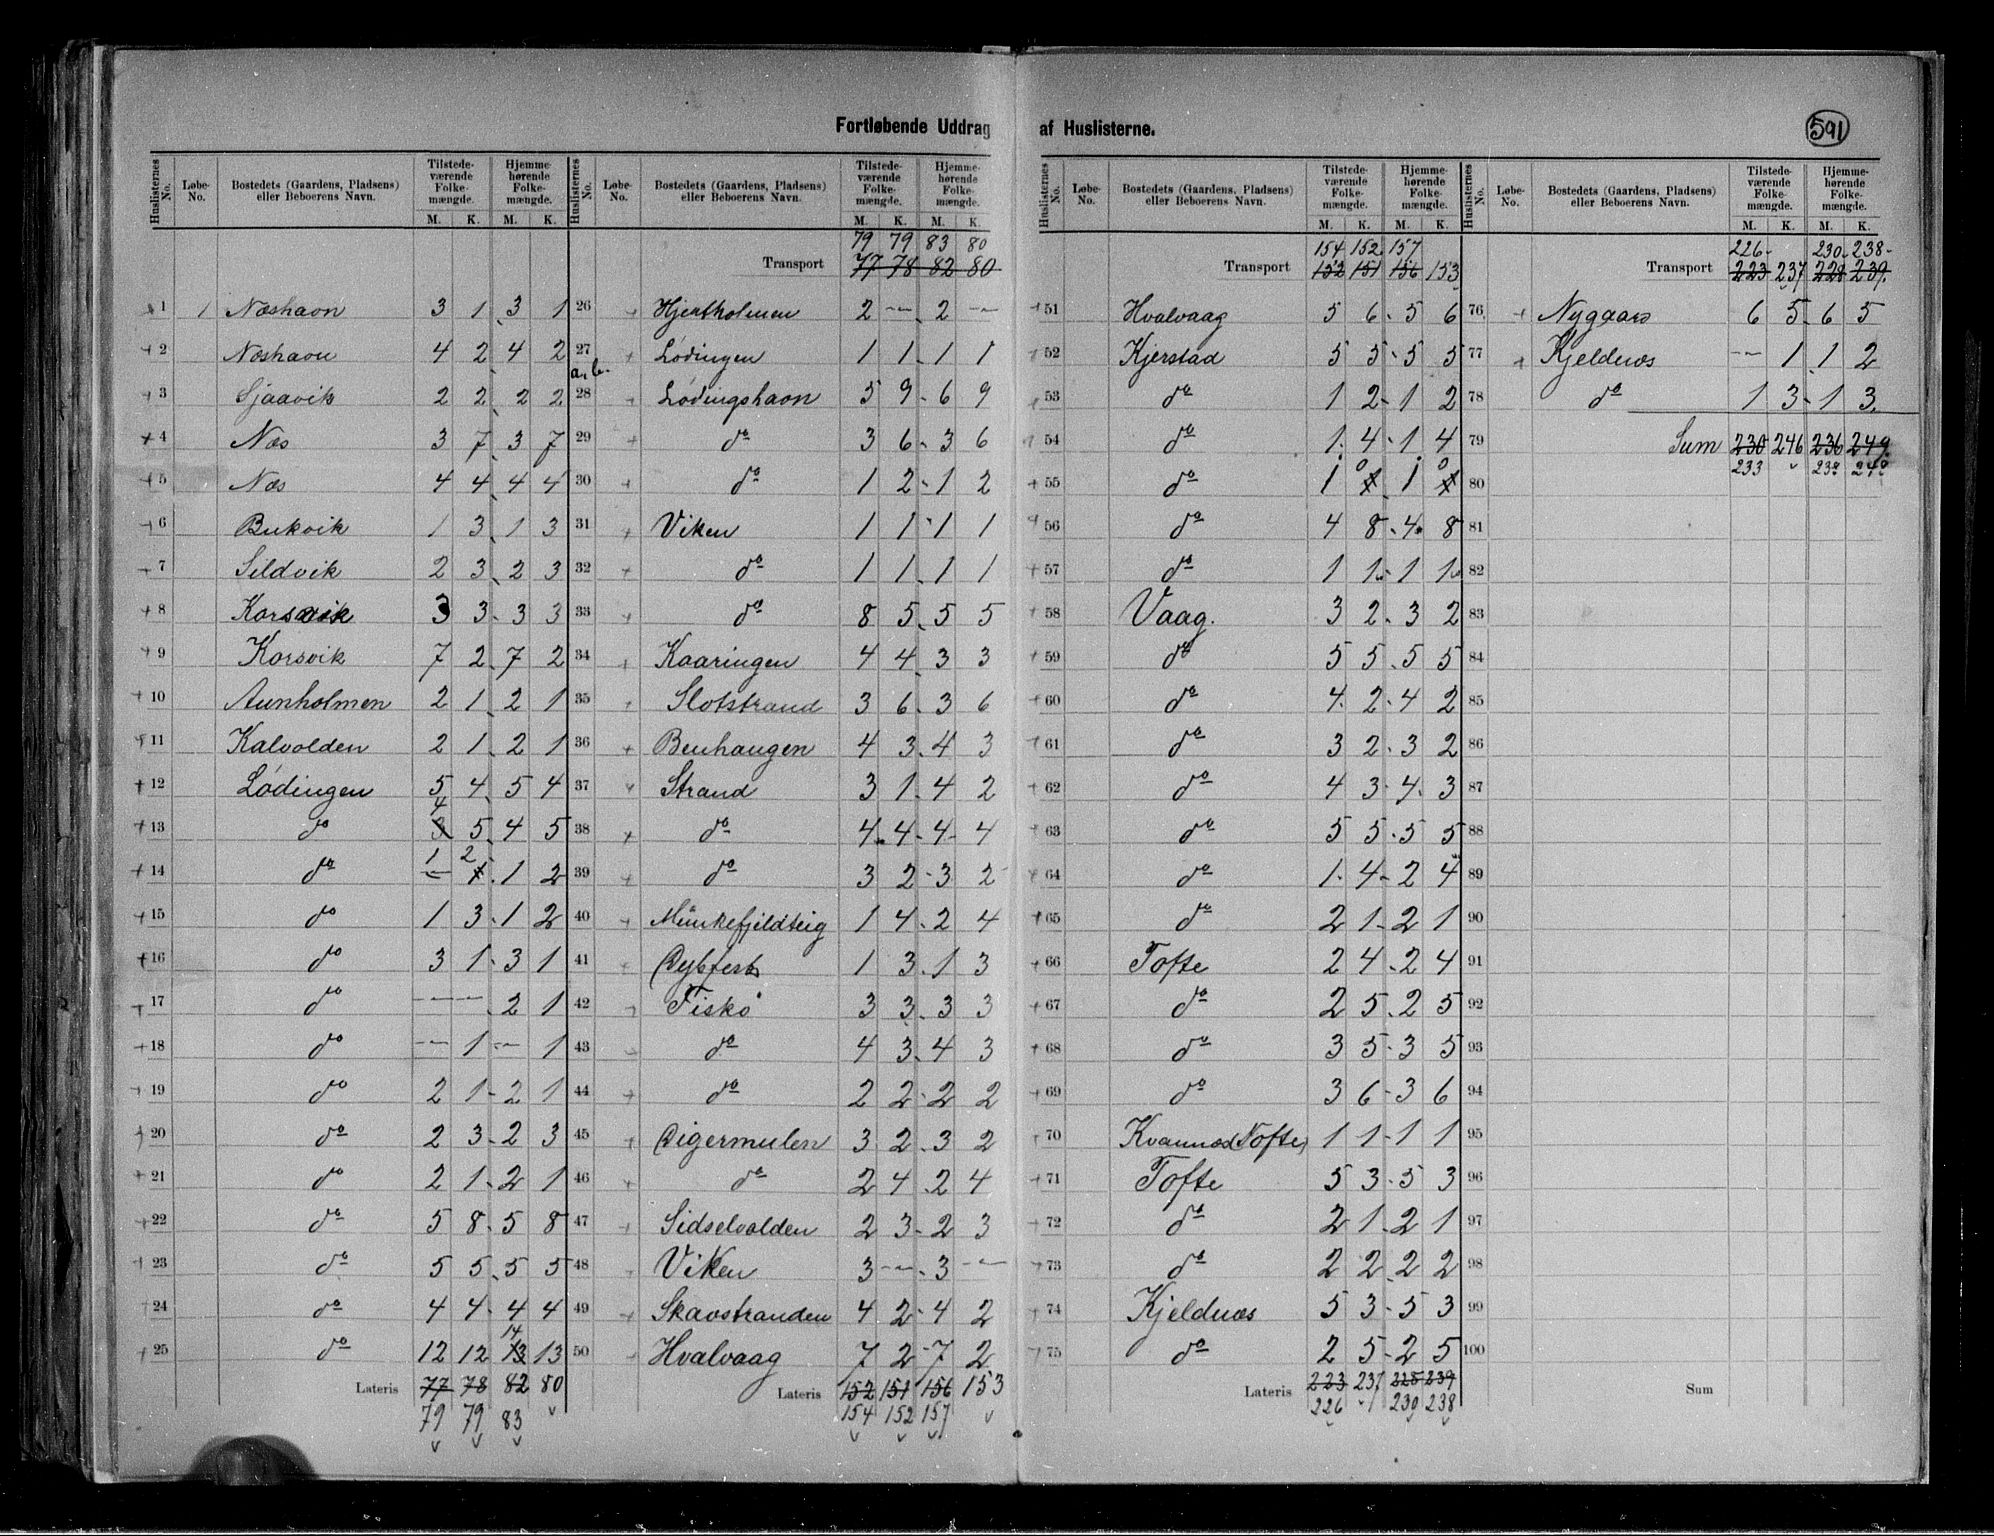 Fortløbende Uddrag af Huslisterne.
591
Huslisternes No. | Løbe-No. | Bostedets (Gaardens, Pladsens) eller Beboerens Navn. | Tilstedeværende Folkemængde. M. K. | Hjemmehørende Folkemængde. M. K.
1 1 Næshavn 3 1 3 1
2 Næshavn 4 2 4 2
3 Sjaavik 2 2 2 2
4 Næs 3 7 3 7
5 Næs 4 4 4 4
6 Bukvik 1 3 1 3
7 Sildvik 2 3 2 3
8 Korsvik 3 3 3 3
9 Korsvik 7 2 7 2
10 Aunholmen 2 1 2 1
11 Kalvolden 2 1 2 1
12 Lødingen 5 4 5 4
13 do 3 4 5 4 5
14 do — 1 1 2 1 2
15 do 1 3 1 2
16 do 3 1 3 1
17 do — — 2 1
18 do — 1 — 1
19 do 2 1 2 1
20 do 2 3 2 3
21 do 2 1 2 1
22 do 5 8 5 8
23 do 5 5 5 5
24 do 4 4 4 4
25 do 12 12 13 14 13
Lateris 77 78 82 80
79 79 83
Huslisternes No. | Løbe-No. | Bostedets (Gaardens, Pladsens) eller Beboerens Navn. | Tilstedeværende Folkemængde. M. K. | Hjemmehørende Folkemængde. M. K.
79 79 83 80
Transport 77 78 82 80
26 Hjertholmen 2 — 2 —
27 Lødingen 1 1 1 1
28 Lødingshavn 5 9 6 9
29 do 3 6 3 6
30 do 1 2 1 2
31 Viken 1 1 1 1
32 do 1 1 1 1
33 do 8 5 5 5
34 Kaaringen 4 4 3 3
35 Slotstrand 3 6 3 6
36 Benhaugen 4 3 4 3
37 Strand 3 1 4 2
38 do 4 4 4 4
39 do 3 2 3 2
40 Munkefjeldteig 1 4 2 4
41 Dybfest 1 3 1 3
42 Fiskø 3 3 3 3
43 do 4 3 4 3
44 do 2 2 2 2
45 Digermulen 3 2 3 2
46 do 2 4 2 4
47 Sidselvolden 2 3 2 3
48 Viken 3 — 3 —
49 Skavstranden 4 2 4 2
50 Hvalvaag 7 2 7 2
Lateris 152 151 156 153
154 152 157
Huslisternes No. | Løbe-No. | Bostedets (Gaardens, Pladsens) eller Beboerens Navn. | Tilstedeværende Folkemængde. M. K. | Hjemmehørende Folkemængde. M. K.
154 152 157
Transport 152 151 156 153
51 Hvalvaag 5 6 5 6
52 Kjerstad 5 5 5 5
53 do 1 2 1 2
54 do 1 4 1 4
55 do 1 1 0 1 1 0
56 do 4 8 4 8
57 do 1 1 1 1
58 Vaag. 3 2 3 2
59 do 5 5 5 5
60 do 4 2 4 2
61 do 3 2 3 2
62 do 4 3 4 3
63 do 5 5 5 5
64 do 1 4 2 4
65 do 2 1 2 1
66 Tofte 2 4 2 4
67 do 2 5 2 5
68 do 3 5 3 5
69 do 3 6 3 6
70 Kvannæs (Tofte) 1 1 1 1
71 Tofte 5 3 5 3
72 do 2 1 2 1
73 do 2 2 2 2
74 Kjeldnæs 5 3 5 3
75 do 2 5 2 5
Lateris 223 237 228 239
226 230 238
Huslisternes No. | Løbe-No. | Bostedets (Gaardens, Pladsens) eller Beboerens Navn. | Tilstedeværende Folkemængde. M. K. | Hjemmehørende Folkemængde. M. K.
226 230 238
Transport 223 237 228 239
76 Nygaard 6 5 6 5
77 Kjeldnæs — 1 1 2
78 do 1 3 1 3
79 Sum 230 246 236 249
233
80
81
82
83
84
85
86
87
88
89
90
91
92
93
94
95
96
97
98
99
100
Sum